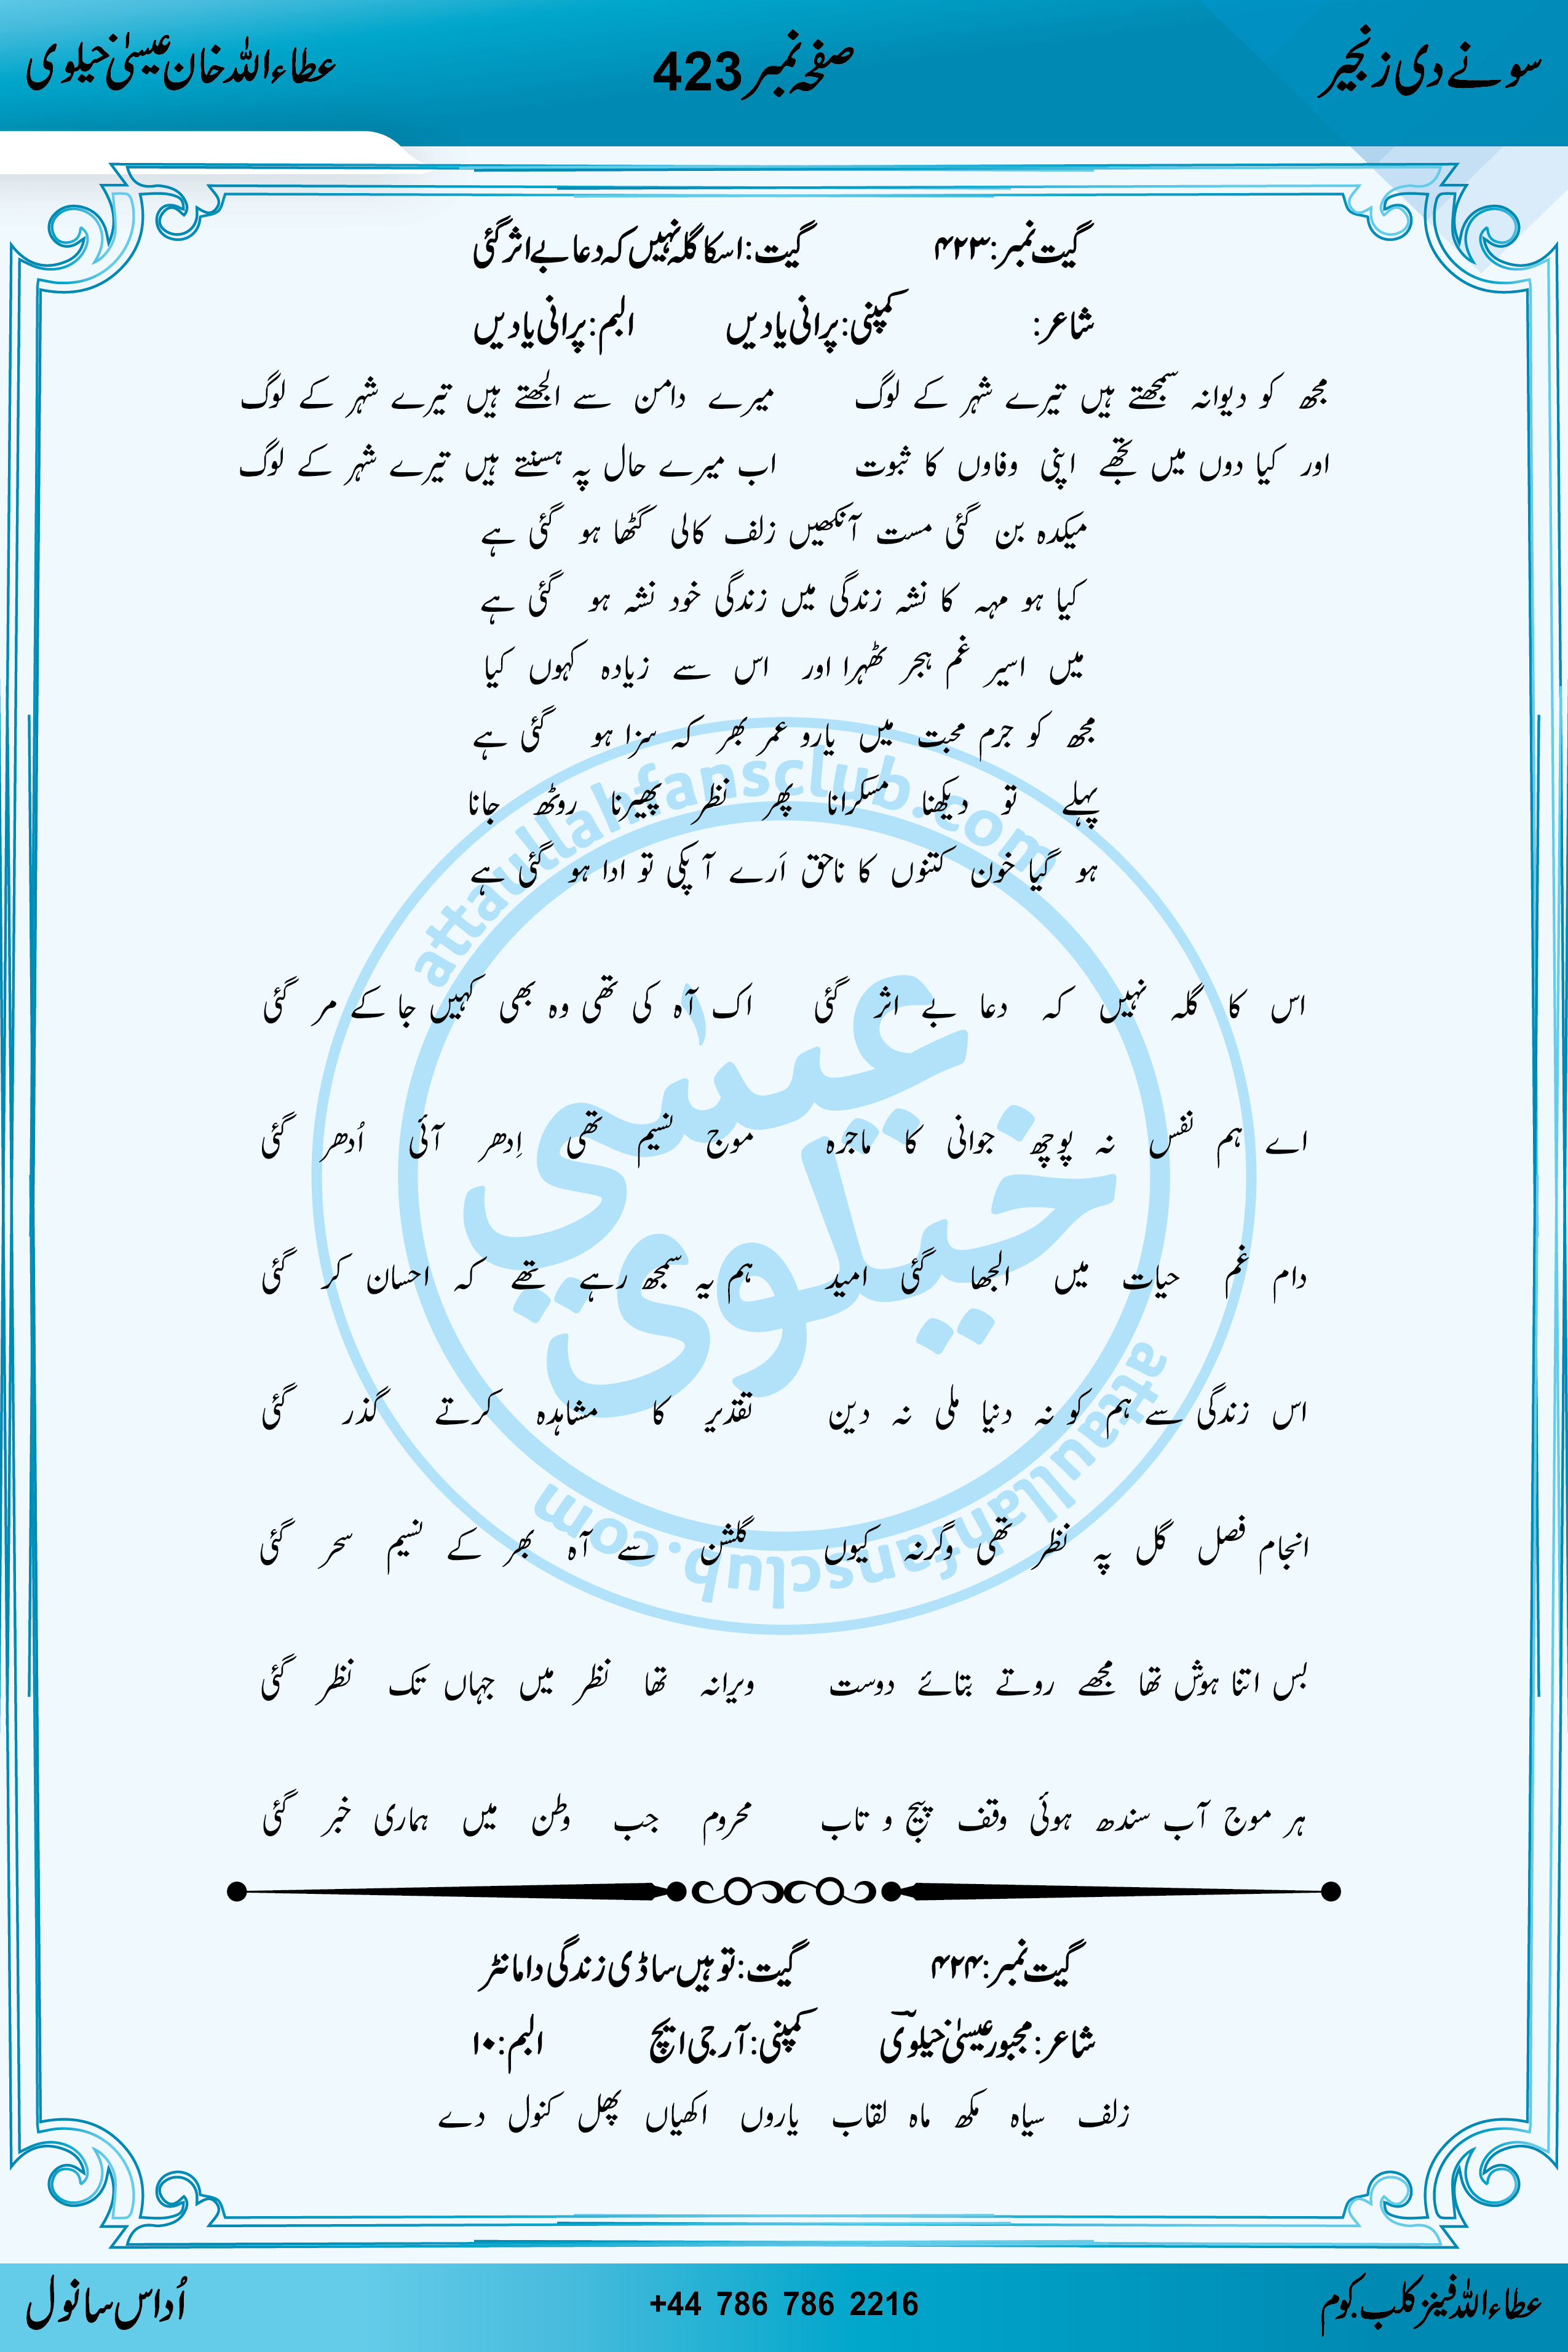 سونے دی زنجیر صفحہ نمبر 423 عطاء اللہ خان عیسیٰ خیلوی
گیت نمبر: ۴۲۳ گیت: اسکا گلہ نہیں کہ دعا بے اثر گئی
شاعر: کمپنی: پرانی یادیں البم: پرانی یادیں
مجھ کو دیوانہ سمجھتے ہیں تیرے شہر کے لوگ میرے دامن سے الجھتے ہیں تیرے شہر کے لوگ
اور کیا دوں میں تجھے اپنی وفاوں کا ثبوت اب میرے حال پہ ہسنتے ہیں تیرے شہر کے لوگ
میکدہ بن گئی مست آنکھیں زلف کالی گٹھا ہو گئی ہے
کیا ہو مہہ کا نشہ زندگی میں زندگی خود نشہ ہو گئی ہے
میں اسیر غم ہجر ٹھہرا اور اس سے زیادہ کہوں کیا
مجھ کو جرم محبت میں یارو عمر بھر کہ سزا ہو گئی ہے
پہلے تو دیکھنا مسکرانا پھر نظر پھیرنا روٹھ جانا
ہو گیا خون کتنوں کا ناحق اَرے آپکی تو ادا ہو گئی ہے
اس کا گلہ نہیں کہ دعا بے اثر گئی اک آہ کی تھی وہ بھی کہیں جا کے مر گئی
اے ہم نفس نہ پوچھ جوانی کا ماجرہ موج نسیم تھی اِدھر آئی اُدھر گئی
دام غم حیات میں الجھا گئی امید ہم یہ سمجھ رہے تھے کہ احسان کر گئی
اس زندگی سے ہم کو نہ دنیا ملی نہ دین تقذیر کا مشاہدہ کرتے گذر گئی
انجام فصل گل پہ نظر تھی وگرنہ کیوں گلشن سے آہ بھر کے نسیم سحر گئی
بس اتنا ہوش تھا مجھے روتے بتائے دوست ویرانہ تھا نظر میں جہاں تک نظر گئی
ہر موج آب سندھ ہوئی وقف پیچ و تاب محروم جب وطن میں ہماری خبر گئی
گیت نمبر: ۴۲۴ گیت: تو ہیں ساڈی زندگی دا مانٹر
شاعر: مجبور عیسیٰ خیلویؔ کمپنی: آر جی ایچ البم: ۱۰
زلف سیاہ مکھ ماہ لقاب یاروں اکھیاں پھل کنول دے
attaullahfansclub.com
عیسٰی
خیلوی
attaullahfansclub.com
عطاء اللہ فینز کلب. کوم +44 786 786 2216 اُداس سانول